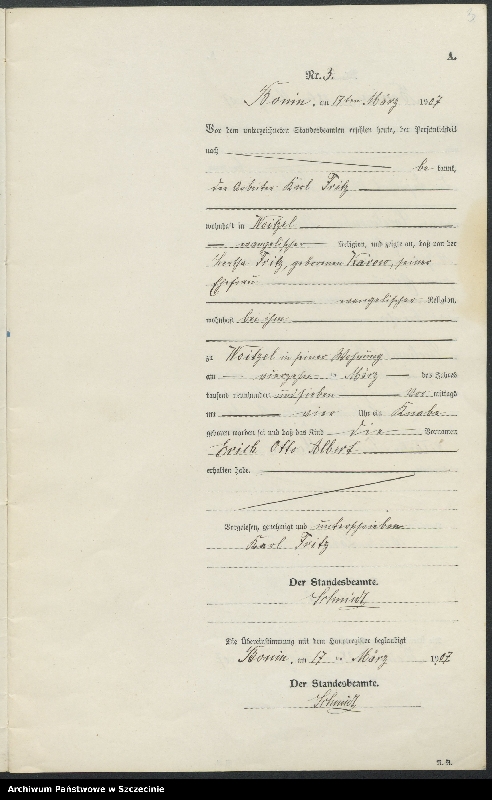 A.
Nr. 3.
Bonin, am 17ten März 1907
Vor dem unterzeichneten Standesbeamten erschien heute, der Persönlichkeit
nach
be kannt,
der Arbeiter Karl Fritz
wohnhaft in Woitzel
evangelischer Religion, und zeigte an, daß von der
Hertha Fritz, geborenen Karow, seiner
Ehefrau
evangelischer Religion,
wohnhaft bei ihm
zu Woitzel in seiner Wohnung
am vierzehn März des Jahres
tausend neunhundert und sieben Vor mittags
um vier Uhr ein Knabe
geboren worden sei und daß das Kind die Vornamen
Erich Otto Albert
erhalten habe.
Vorgelesen, genehmigt und unterschrieben
Karl Fritz
Der Standesbeamte.
Schmidt
Die Übereinstimmung mit dem Hauptregister beglaubigt
Bonin, am 17 März 1907
Der Standesbeamte.
Schmidt
Archiwum Państwowe w Szczecinie